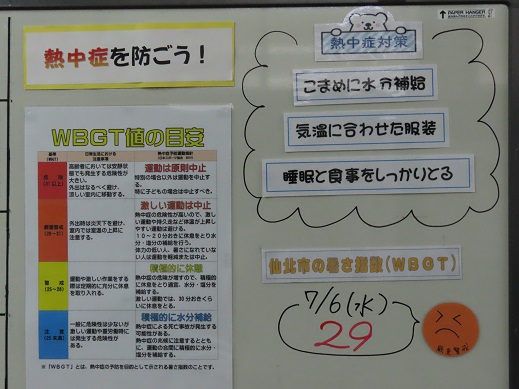 熱中症を防ごう！
PAPER HANGER
熱中症対策
こまめに水分補給
気温に合わせた服装
睡眠と食事をしっかりとる
WBGT値の目安
基準
(WBGT)
日常生活における
注意事項
熱中症予防運動指針
危険
(31以上)
高齢者においては安静状
態でも発生する危険性が
大きい。
外出はなるべく避け、
涼しい室内に移動する。
運動は原則中止
特別の場合以外は運動を中止す
る。
特に子どもの場合は中止すべき。
厳重警戒
(28~31)
外出時は炎天下を避け、
室内では室温の上昇に
注意する。
激しい運動は中止
熱中症の危険性が高いので、激し
い運動や持久走など体温が上昇
しやすい運動は避ける。
10~20分おきに休息をとり水
分・塩分の補給を行う。
体力の低い人、暑さになれていない
人は運動を軽減または中止。
警戒
(25~28)
運動や激しい作業をする
際は定期的に充分に休息
を取り入れる。
積極的に休憩
熱中症の危険が増すので、積極的
に休息をとり適宜、水分・塩分を
補給する。
激しい運動では、30分おきくら
いに休息をとる。
注意
(25未満)
一般に危険性は少ないが
激しい運動や重労働時に
は発生する危険性があ
る。
積極的に水分補給
熱中症による死亡事故が発生する
可能性がある。
熱中症の兆候に注意するととも
に、運動の合間に積極的に水分・
塩分を補給する。
※「WBGT」とは、熱中症の予防を目的として示された暑さ指数のことです。
仙北市の暑さ指数(WBGT)
7/6(水)
29
厳重警戒